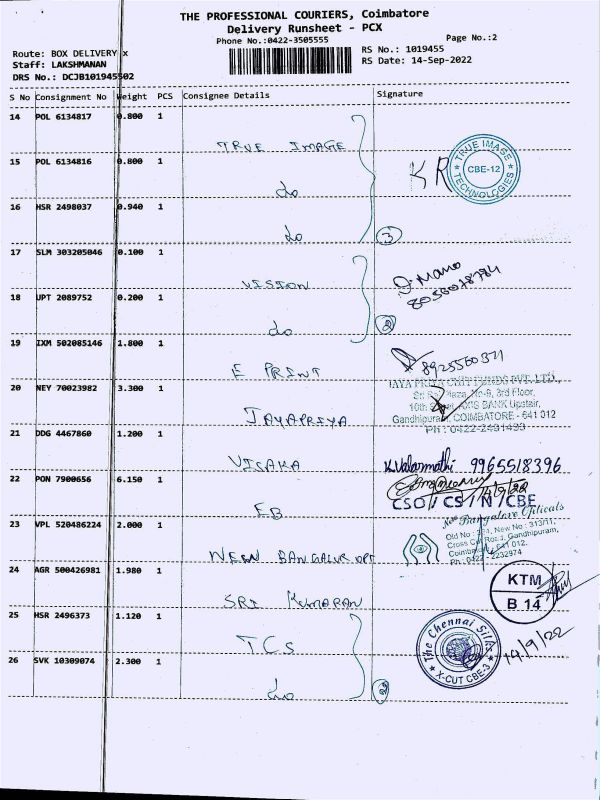 THE PROFESSIONAL COURIERS, Coimbatore
Delivery Runsheet - PCX
Phone No.:0422-3505555
Page No.:2
Route: BOX DELIVERY x
RS No.: 1019455
Staff: LAKSHMANAN
RS Date: 14-Sep-2022
DRS No.: DCJB101945502
S No Consignment No Weight PCS Consignee Details Signature
14 POL 6134817 0.800 1
TRUE IMAGE
15 POL 6134816 0.800 1
do
KR
TRUE IMAGE TECHNOLOGIES
CBE-12
16 HSR 2498037 0.940 1
do
3
17 SLM 303205046 0.100 1
VISION
18 UPT 2089752 0.200 1
do
2
19 IXM 502085146 1.800 1
E PRINT
20 NEY 70023982 3.300 1
JAYAPRIYA
JAYA PRIYA CHIT FUNDS PVT. LTD.,
No-9, 3rd Floor,
AXIS BANK Upstair,
Gandhipuram, COIMBATORE - 641 012
21 DDG 4467860 1.200 1
VISAKA
K.Valarmathi 9965518396
22 PON 7900656 6.150 1
EB
CSO / CS / N / CBE
23 VPL 520486224 2.000 1
NEW BANGALUR OPT
New Bangalore Opticals
New No : 313/11,
Gandhipuram,
Coimbatore 641 012.
24 AGR 500426981 1.980 1
SRI KUMARAN
KTM
B 14
25 HSR 2496373 1.120 1
TCS
The Chennai Silks
X-CUT CBE-3
14/9/22
26 SVK 10309074 2.300 1
do
2